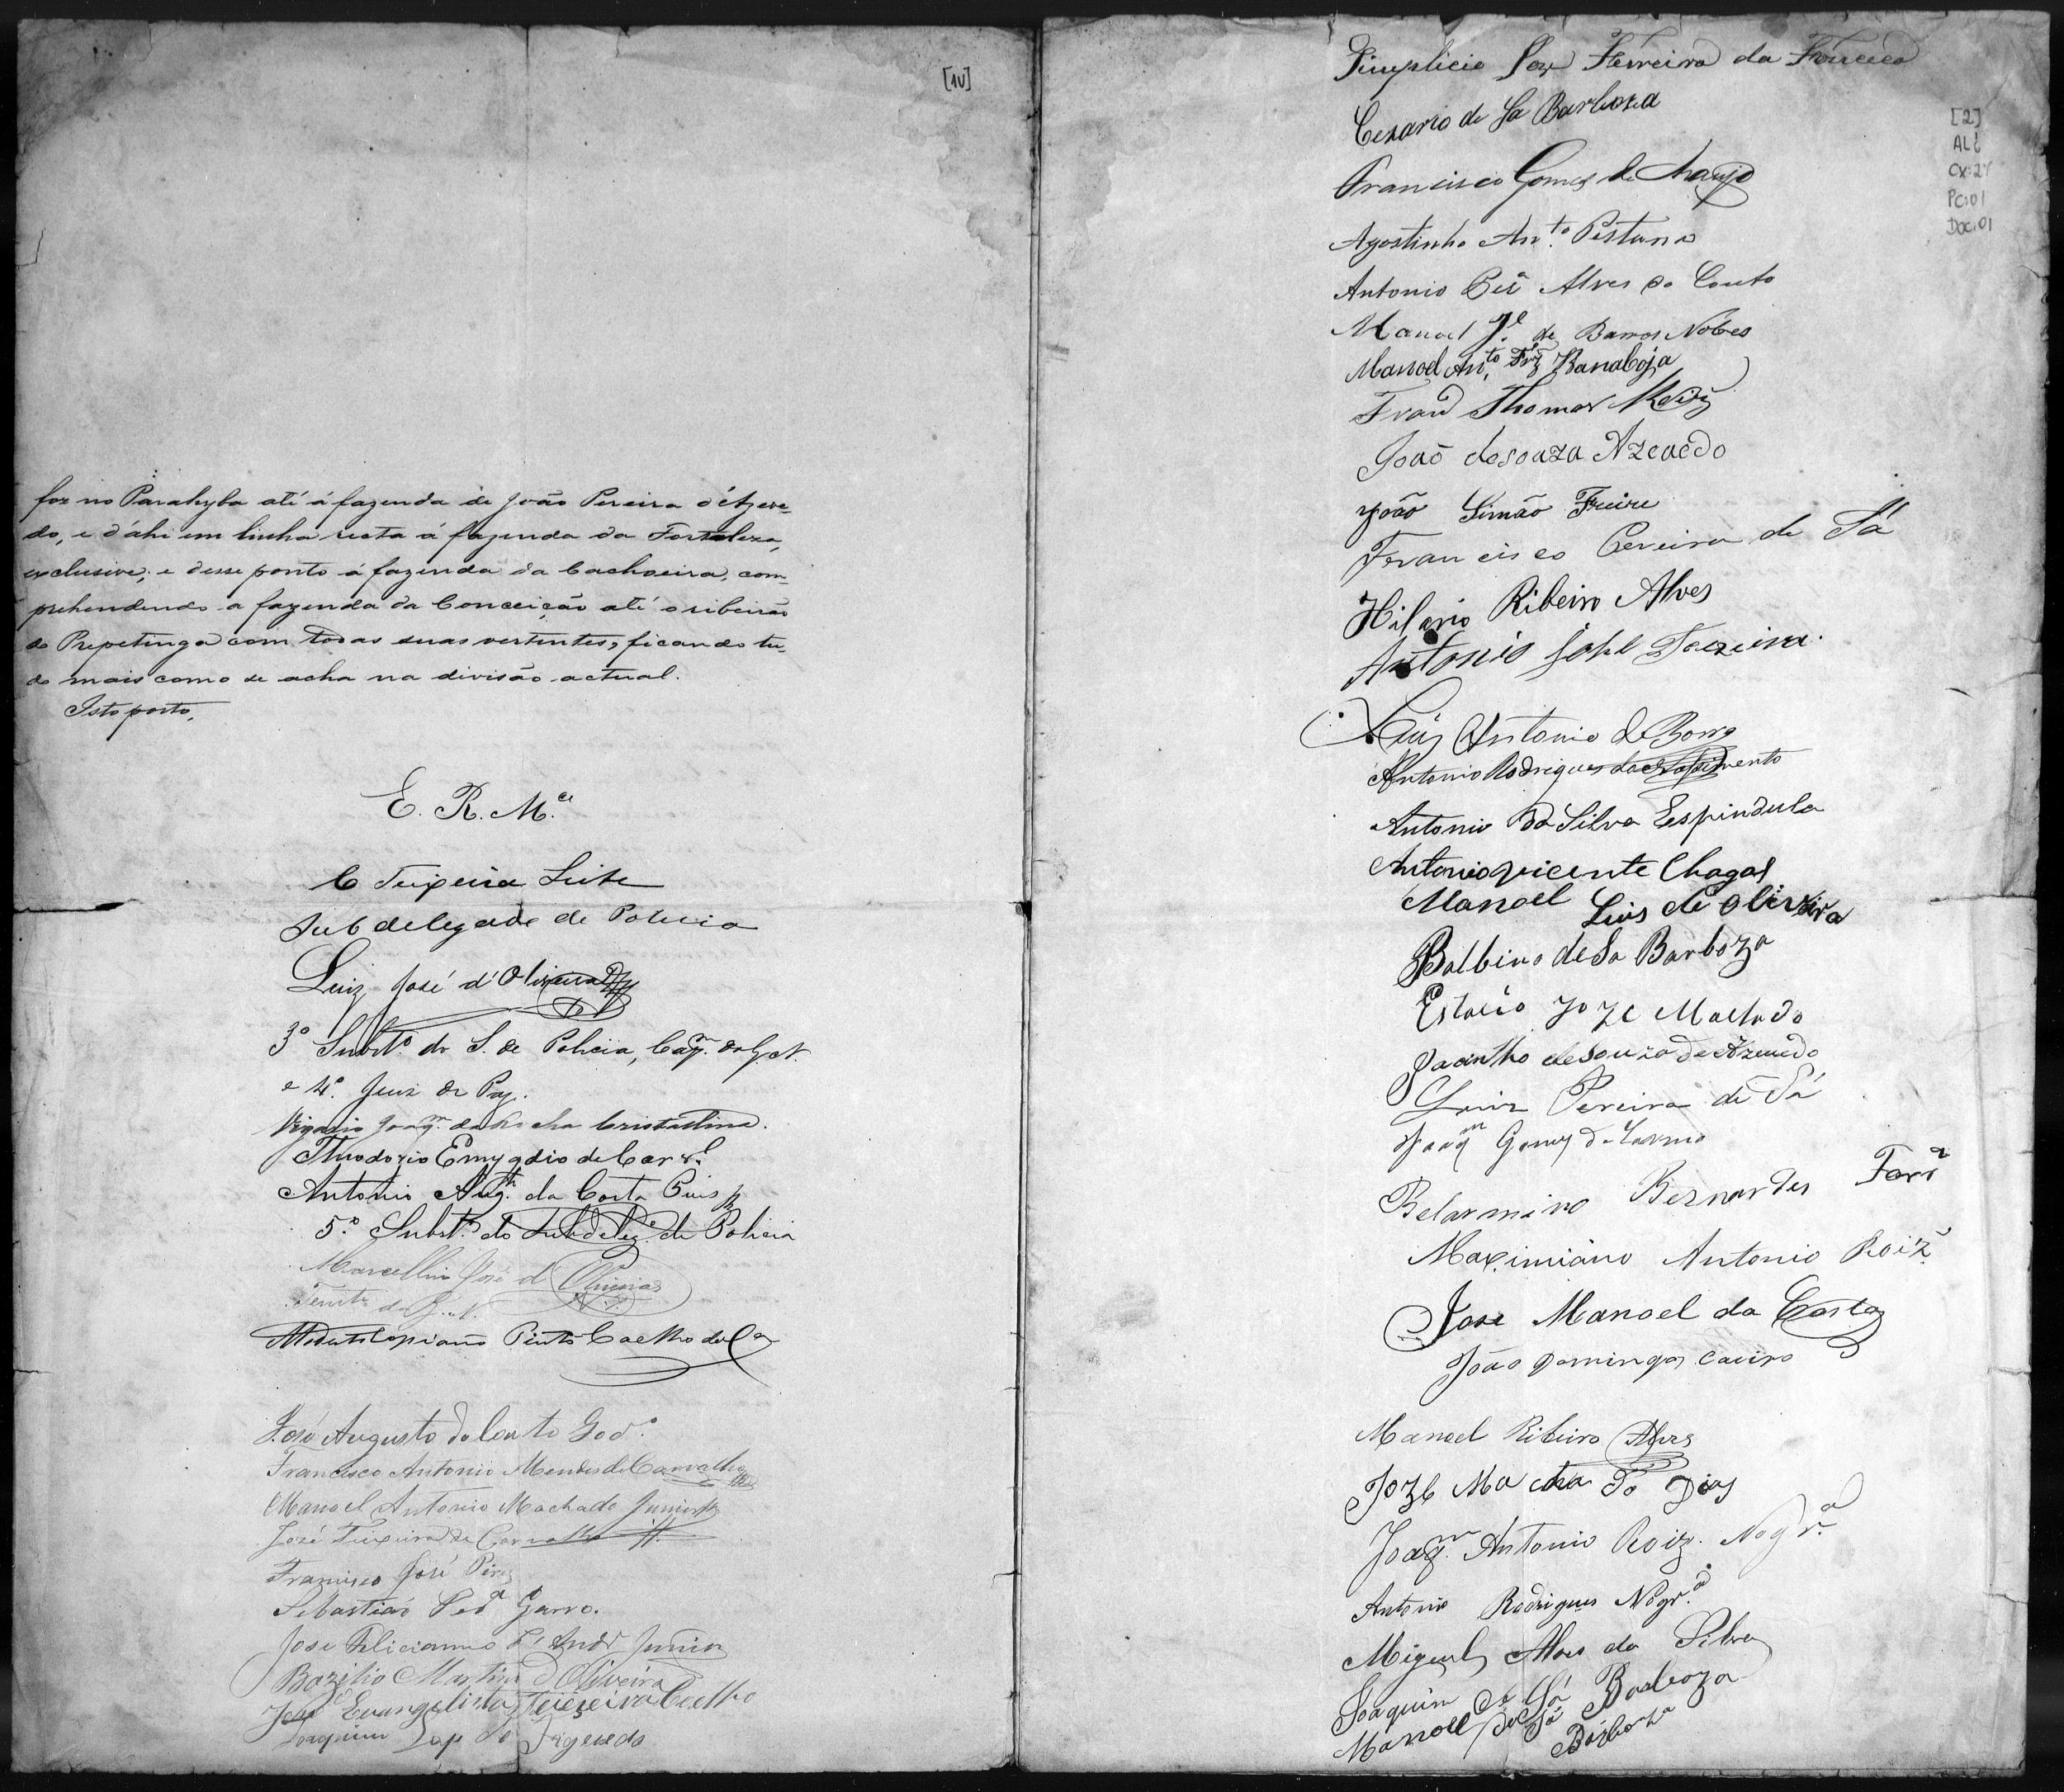 [1v]
foz no Parahyba até á fazenda de João Pereira d'Azeve-
do, e d'ahi em linha recta á fazenda da Fortaleza,
exclusive; e desse ponto á fazenda da Cachoeira, com-
prehendendo a fazenda da Conceição até o ribeirão
do Pirpetinga com todas suas vertentes, ficando tu-
do mais como se acha na divisão actual.
Isto posto,
E. R. M.ce
C Teixeira Leite
Subdelegado de Policia
Luiz José d'Oliveira
3º Subst.º do S. de Policia, Cap.m da G. N.
e 4.º Juiz de Paz.
Vigario Joaq.m da Rocha Cristallina.
Theodozio Emygdio de Carv.l
Antonio Aug.to da Costa
5.º Subst.º do Subdeleg.º de Policia
Marcellino José d'Oliveira
Tenente da G. N.
Pinto Coelho da C.a
José Augusto do Couto God.º
Francisco Antonio Mendes de Carvalho
Manoel Antonio Machado Junior
José Teixeira de Carvalho
Francisco José Pires
Sebastião Garro.
José Feliciano Junior
Bazilio Martins d'Oliveira
José Evangelista Teixeira Coelho
Joaquim de
[2]
AL
CX:27
PC:01
Doc:01
Simplicio Ferreira da Fonceca
Cezario de Sa Barboza
Francisco Gomes de Araujo
Agostinho Ant.º Pestana
Antonio Alves do Couto
Manoel J.e de Barros Nobes
Manoel Ant.to
Thomas
João de souza Azevedo
João Simão Freire
Francisco Pereira de Sá
Hilario Ribeiro Alves
Antonio José Teixeira.
Luiz Antonio de
Antonio Rodrigues do Nascimento
Antonio da Silva Espindula
Antonio vicente Chagas
Manoel Luis de oliveira
Balbino de Sa Barboza
Estacio Joze Machado
Jacintho de Souza de Azevedo
Luiz Pereira de Sá
Joaq.m Gomes de
Belarmino Bernardes
Maximiano Antonio Roiz
Jose Manoel da Costa
João Domingos
Manoel Ribeiro Alves
Joze Machado Dias
Joaq.m Antonio Roiz. Nogr.a
Antonio Rodrigues Nogr.a
Miguel Alves da Silva
Joaquim de Sá Barboza
Manoel de Sá Barboza